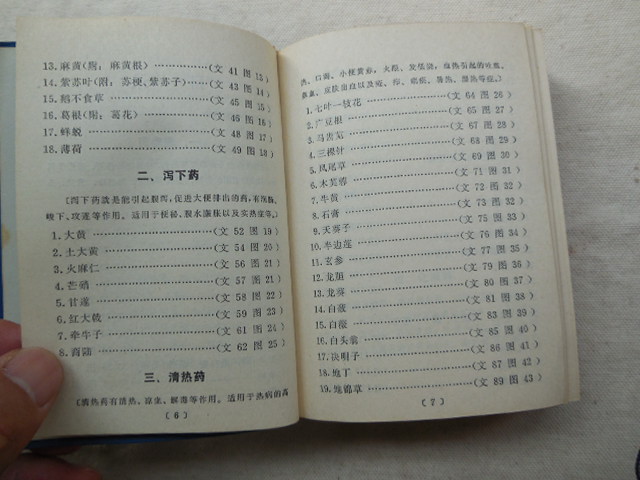 13.麻黄(附:麻黄根)…………(文 41 图 13)
14.紫苏叶(附:苏梗、紫苏子)……(文 43 图 14)
15.鹅不食草……………………(文 45 图 15)
16.葛根(附:葛花)……………(文 46 图 16)
17.蝉蜕…………………………(文 48 图 17)
18.薄荷…………………………(文 49 图 18)
二、泻下药
〔泻下药就是能引起腹泻,促进大便排出的药,有
峻下、攻逐等作用。适用于便秘、腹水
1.大黄…………………………(文 52 图 19)
2.土大黄………………………(文 54 图 20)
3.火麻仁………………………(文 56 图 21)
4.芒硝…………………………(文 57 图 21)
5.甘遂…………………………(文 58 图 22)
6.红大戟………………………(文 59 图 23)
7.牵牛子………………………(文 61 图 24)
8.商陆…………………………(文 62 图 25)
三、清热药
〔清热药有清热、凉血、解毒等作用。适用于热病的高
(6)
热、
1.七叶一枝花…………………(文 64 图 26)
2.广豆根………………………(文 65 图 27)
3.马齿苋………………………(文 67 图 28)
4.三棵针………………………(文 68 图 29)
5.凤尾草………………………(文 69 图 30)
6.木芙蓉………………………(文 71 图 31)
7.牛黄…………………………(文 72 图 32)
8.石膏…………………………(文 73 图 32)
9.天葵子………………………(文 75 图 33)
10.半边莲………………………(文 76 图 34)
11.玄参…………………………(文 77 图 35)
12.龙胆…………………………(文 79 图 36)
13.龙葵…………………………(文 80 图 37)
14.白蔹…………………………(文 81 图 38)
15.白薇…………………………(文 83 图 39)
16.白头翁………………………(文 85 图 40)
17.决明子………………………(文 86 图 41)
18.地丁…………………………(文 87 图 42)
19.地锦草………………………(文 89 图 43)
(7)